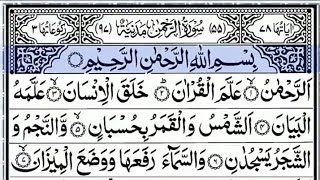 اٰیَاتُهَا ٧٨ (٥٥) سُوْرَةُ الرَّحْمٰنِ مَدَنِيَّةٌ (٩٧) رُكُوْعَاتُهَا ٣
بِسْمِ اللّٰهِ الرَّحْمٰنِ الرَّحِيْمِ
اَلرَّحْمٰنُ ۙ﴿١﴾ عَلَّمَ الْقُرْاٰنَ ؕ﴿٢﴾ خَلَقَ الْاِنْسَانَ ۙ﴿٣﴾ عَلَّمَهُ
الْبَيَانَ ﴿٤﴾ اَلشَّمْسُ وَ الْقَمَرُ بِحُسْبَانٍ ﴿٥﴾ وَّ النَّجْمُ وَ
الشَّجَرُ يَسْجُدٰنِ ﴿٦﴾ وَ السَّمَآءَ رَفَعَهَا وَ وَضَعَ الْمِيْزَانَ ۙ﴿٧﴾